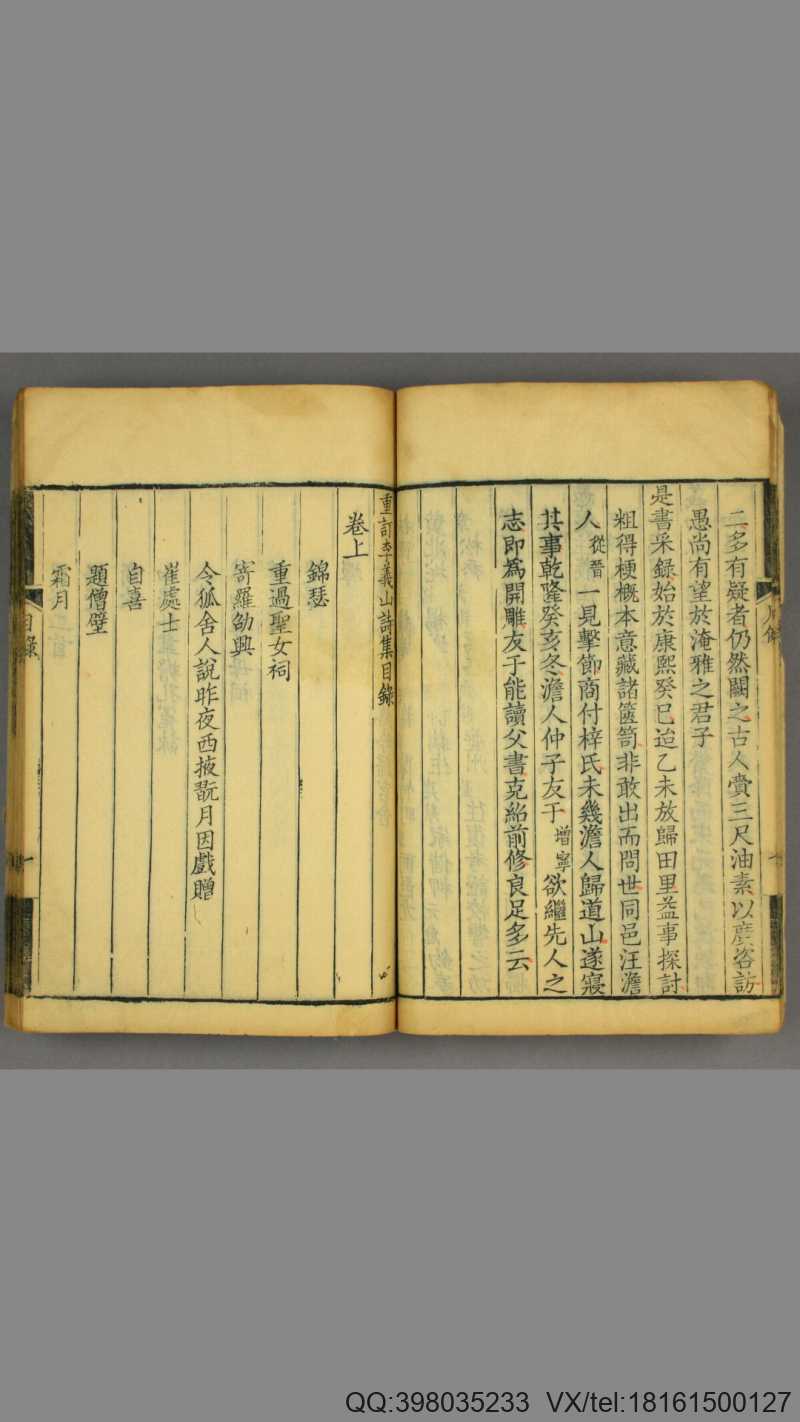 二多有疑者仍然闕之古人賫三尺油素以廣咨訪
愚尚有望於淹雅之君子
是書采錄始於康熙癸巳迨乙未放歸田里益事探討
粗得梗概本意藏諸篋笥非敢出而問世同邑汪澹
人從晉一見擊節商付梓氏未幾澹人歸道山遂寢
其事乾隆癸亥冬澹人仲子友于增寧欲繼先人之
志即為開雕友于能讀父書克紹前修良足多云
重訂李義山詩集目錄
卷上
錦瑟
重過聖女祠
寄羅劭興
令狐舍人說昨夜西掖翫月因戲贈
崔處士
自喜
題僧壁
霜月
目錄
一
QQ:398035233 VX/tel:18161500127